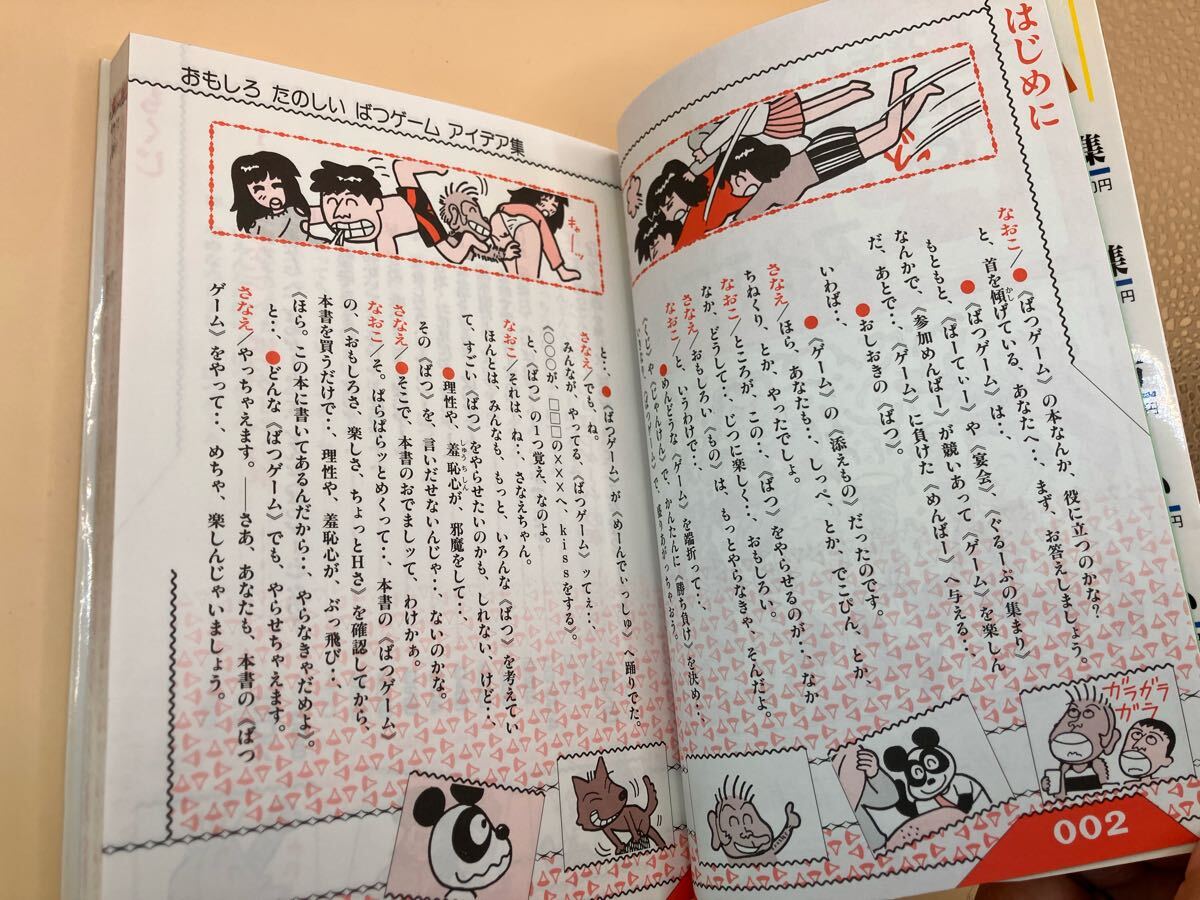 はじめに
なおこ/●《ばつゲーム》の本なんか、役に立つのかな?
と、首を傾げている、あなたへ‥、まず、お答えしましょう。
かし
●《ばつゲーム》は‥、
もともと、《ぱーてぃー》や《宴会》、《ぐるーぷの集まり》
なんかで、《参加めんばー》が競いあって《ゲーム》を楽しん
だ、あとで‥、《ゲーム》に負けた《めんばー》へ与える‥、
●おしおきの《ばつ》。
いわば‥、
●《ゲーム》の《添えもの》だったのです。
さなえ/ほら、あなたも‥、しっぺ、とか、でこぴん、とか、
ちねくり、とか、やったでしょ。
なおこ/ところが、この‥、《ばつ》をやらせるのが‥、なか
なか、どうして‥、じつに楽しく‥、おもしろい。
さなえ/おもしろい《もの》は、もっとやらなきゃ、そんだよ。
なおこ/と、いうわけで‥、
●めんどうな、《ゲーム》を端折って、《勝ち負け》を決め‥、
《くじ》や《じゃんけん》で、かんたんに
ガラガラ
ガラ
002
集
円
集
円
円
おもしろ たのしい ばつゲーム アイデア集
キャーッ
と‥、●《ばつゲーム》が《めーんでぃっしゅ》へ踊りでた。
さなえ/でも、ね。
みんなが、やってる、《ばつゲーム》ッてぇ‥、
《○○○が、□□□の×××へ、kissをする》。
と、《ばつ》の1つ覚え、なのよ。
なおこ/それは、ね‥、さなえちゃん。
ほんとは、みんなも、もっと、いろんな《ばつ》を考えてい
て、すごい《ばつ》をやらせたいのかも、しれない、けど‥、
●理性や、羞恥心が、邪魔をして‥、
しゅうちしん
その《ばつ》を、言いだせないんじゃ‥、ないのかな。
さなえ/●そこで、本書のおでましッて、わけかぁ。
なおこ/そ。ぱらぱらッとめくって‥、本書の《ばつゲーム》
の、《おもしろさ、楽しさ、ちょっとHさ》を確認してから、
本書を買うだけで‥、理性や、羞恥心が、ぶっ飛び‥、
《ほら。この本に書いてあるんだから‥、やらなきゃだめよ》。
と‥、●どんな《ばつゲーム》でも、やらせちゃえます。
さなえ/やっちゃえます。――さあ、あなたも、本書の《ばつ
ゲーム》をやって‥、めちゃ、楽しんじゃいましょう。